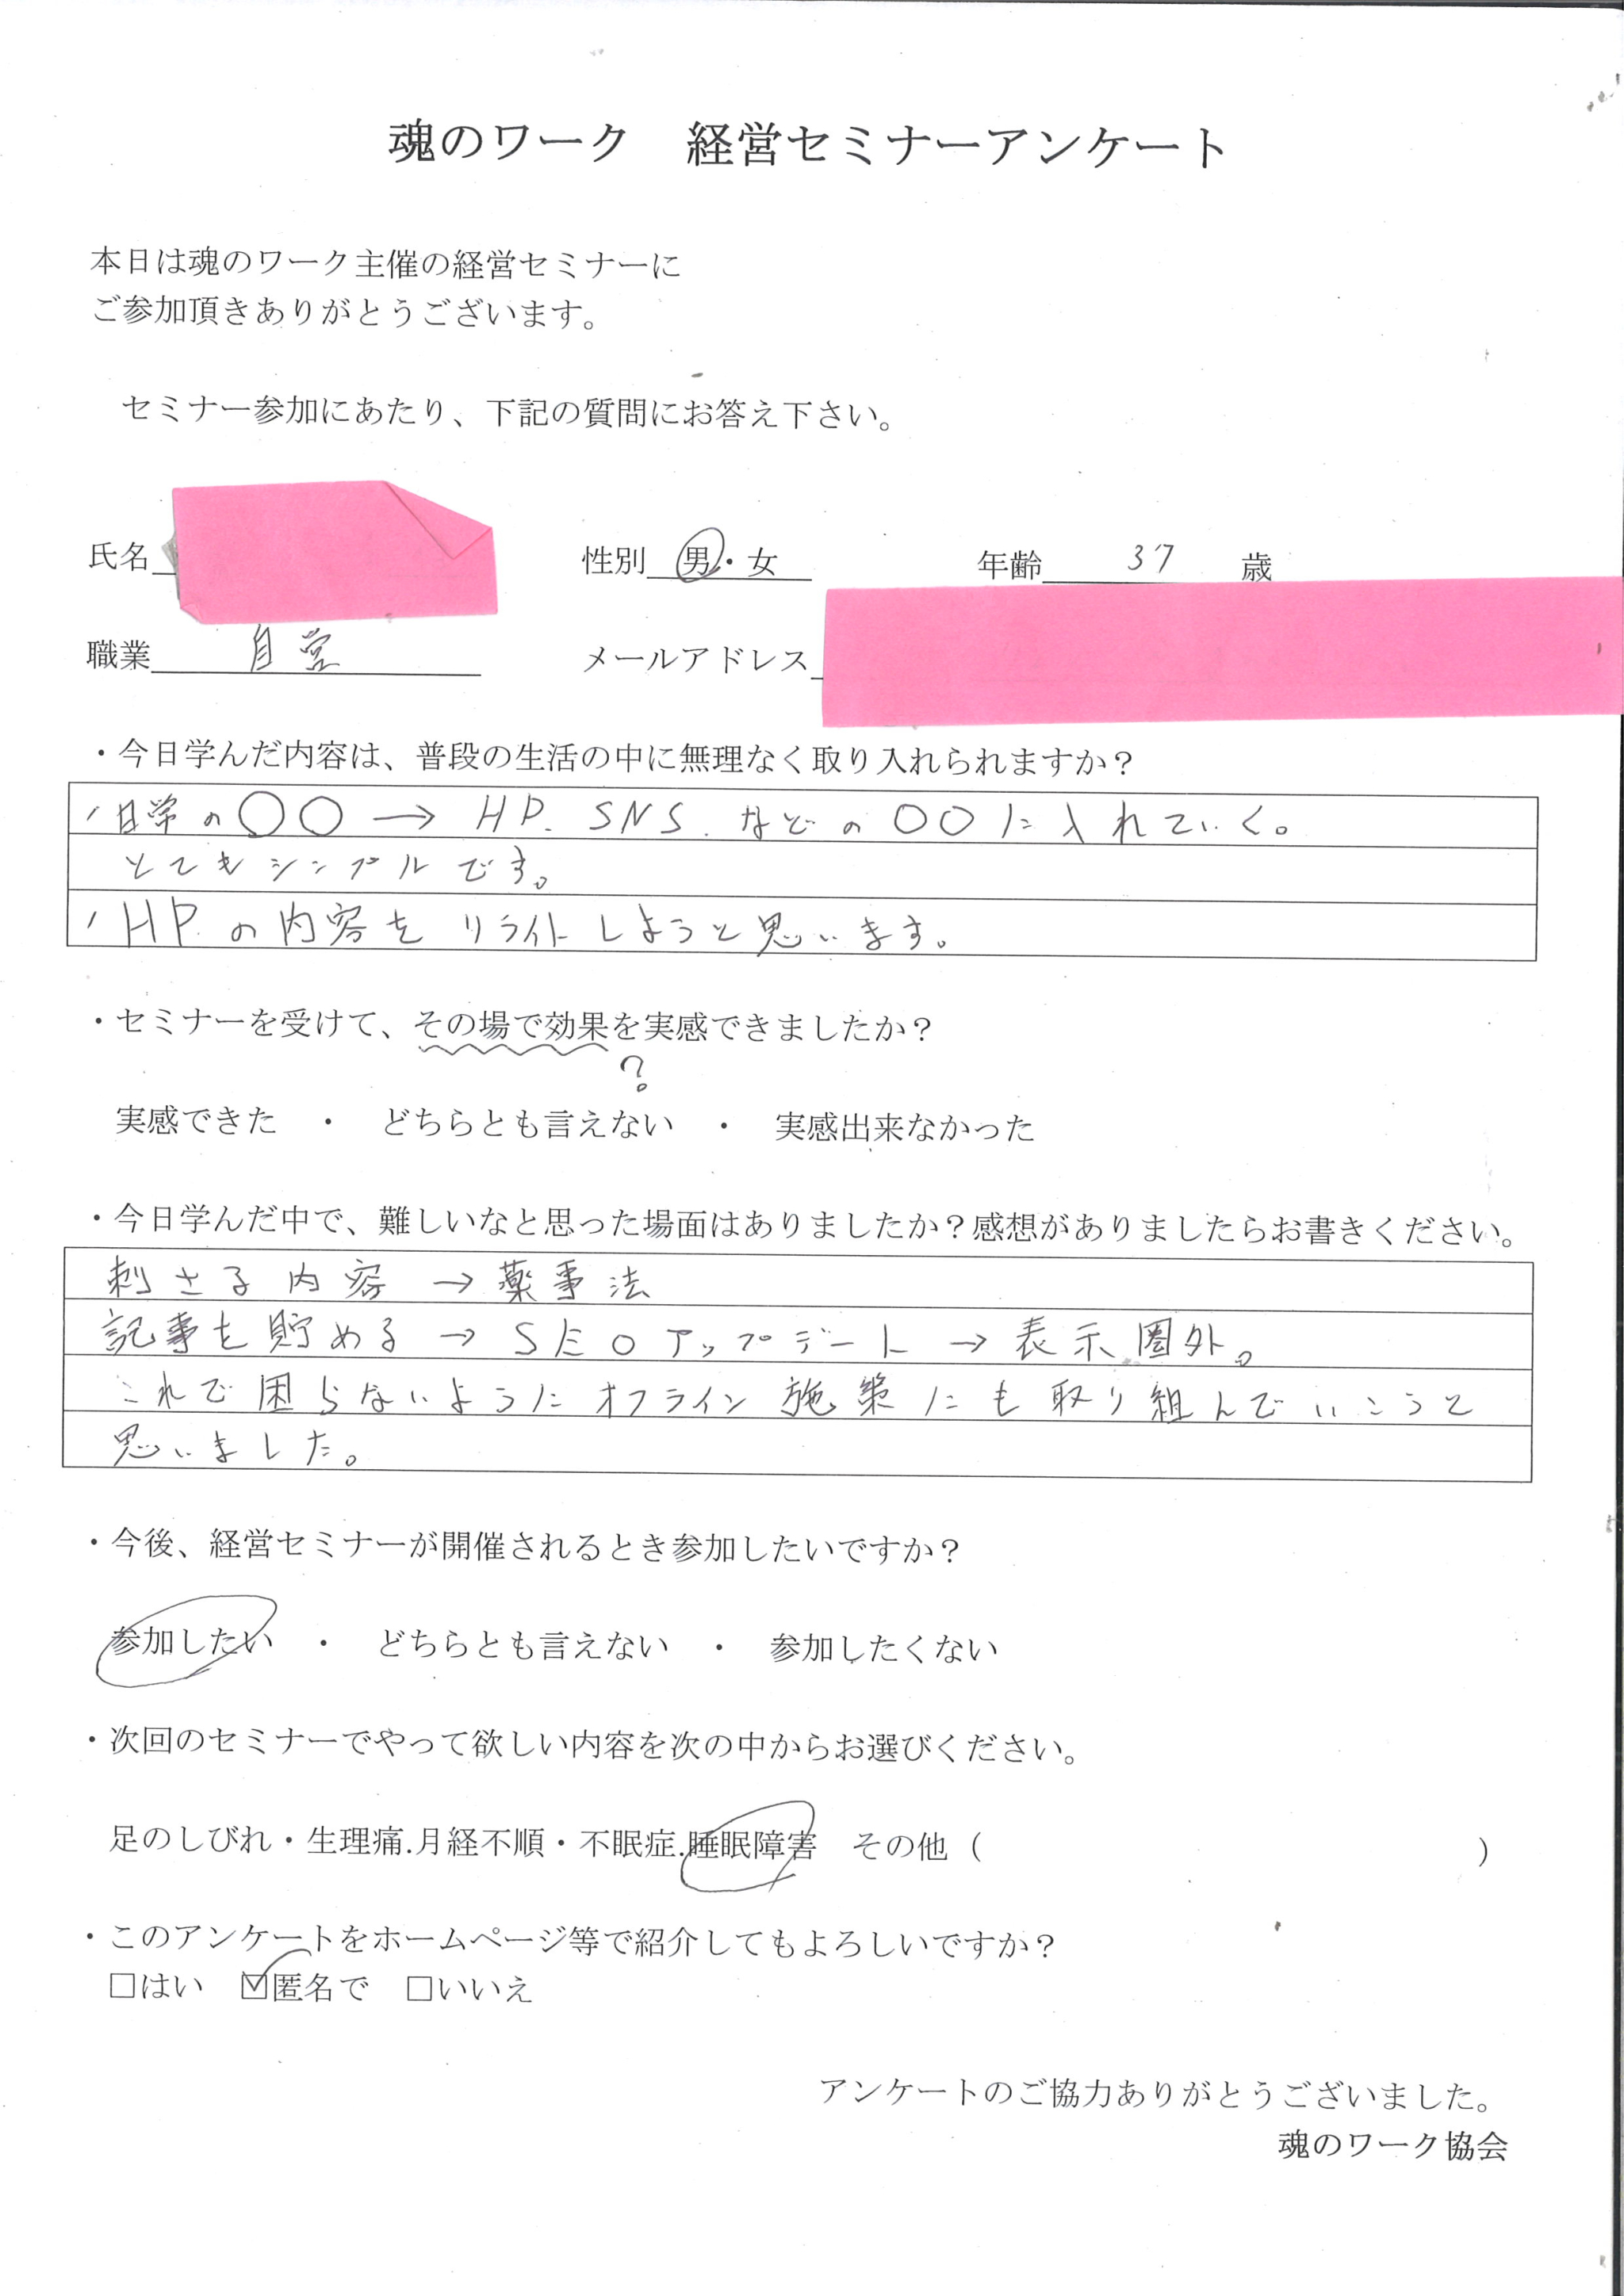 魂のワーク　経営セミナーアンケート
本日は魂のワーク主催の経営セミナーに
ご参加頂きありがとうございます。
セミナー参加にあたり、下記の質問にお答え下さい。
氏名　性別　男・女　年齢　37　歳
職業　自営　メールアドレス
・今日学んだ内容は、普段の生活の中に無理なく取り入れられますか？
の〇〇→HP.SNS.などの〇〇に入れていく。
とてもシンプルです。
HP.の内容をリライトしようと思います。
・セミナーを受けて、その場で効果を実感できましたか？
？
実感できた　・　どちらとも言えない　・　実感出来なかった
・今日学んだ中で、難しいなと思った場面はありましたか？感想がありましたらお書きください。
刺さる内容→薬事法
記事を貯める→SEOアップデート→表示圏外。
これで困らないようにオフライン施策にも取り組んでいこうと
思いました。
・今後、経営セミナーが開催されるとき参加したいですか？
参加したい　・　どちらとも言えない　・　参加したくない
・次回のセミナーでやって欲しい内容を次の中からお選びください。
足のしびれ・生理痛.月経不順・不眠症.睡眠障害　その他（　　　）
・このアンケートをホームページ等で紹介してもよろしいですか？
□はい　☑匿名で　□いいえ
アンケートのご協力ありがとうございました。
魂のワーク協会